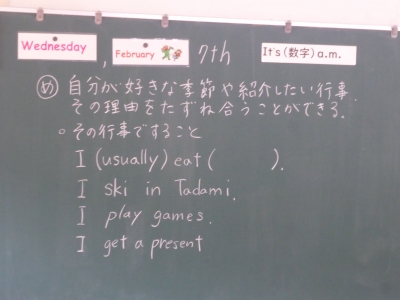 Wednesday, February 7th It's (数字) a.m.
め 自分が好きな季節や紹介したい行事、
その理由をたずね合うことができる。
○その行事ですること
I (usually) eat (          ).
I ski in Tadami.
I play games.
I get a present